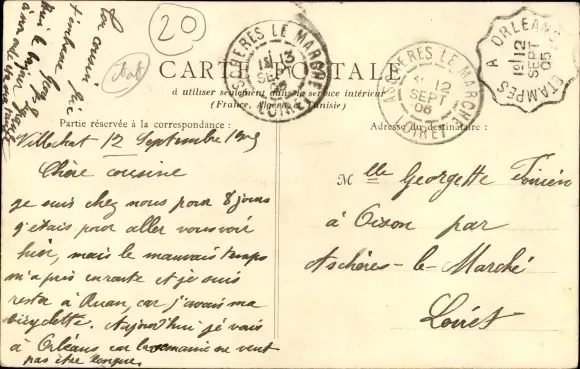 20
CARTE POSTALE
à utiliser seulement dans le service intérieur
(France, Algérie et Tunisie)
Partie réservée à la correspondance :
Adresse du destinataire :
ASCHÈRES LE MARCHÉ
13
SEPT
LOIRET
ASCHÈRES LE MARCHÉ
12
SEPT
LOIRET
ORLÉANS A ETAMPES
12
SEPT
12 Septembre
Chère cousine
je suis chez nous pour 8 jours
j'étais pour aller vous voir
hier, mais le mauvais temps
m'a pris en route et je suis
resté à Ruan, car j'avais ma
bicyclette. Aujourd'hui je vais
à Orléans car la semaine ne veut
pas être longue.
Ton cousin qui
t'embrasse
Mlle Georgette
à Oison par
Aschères-le-Marché
Loiret